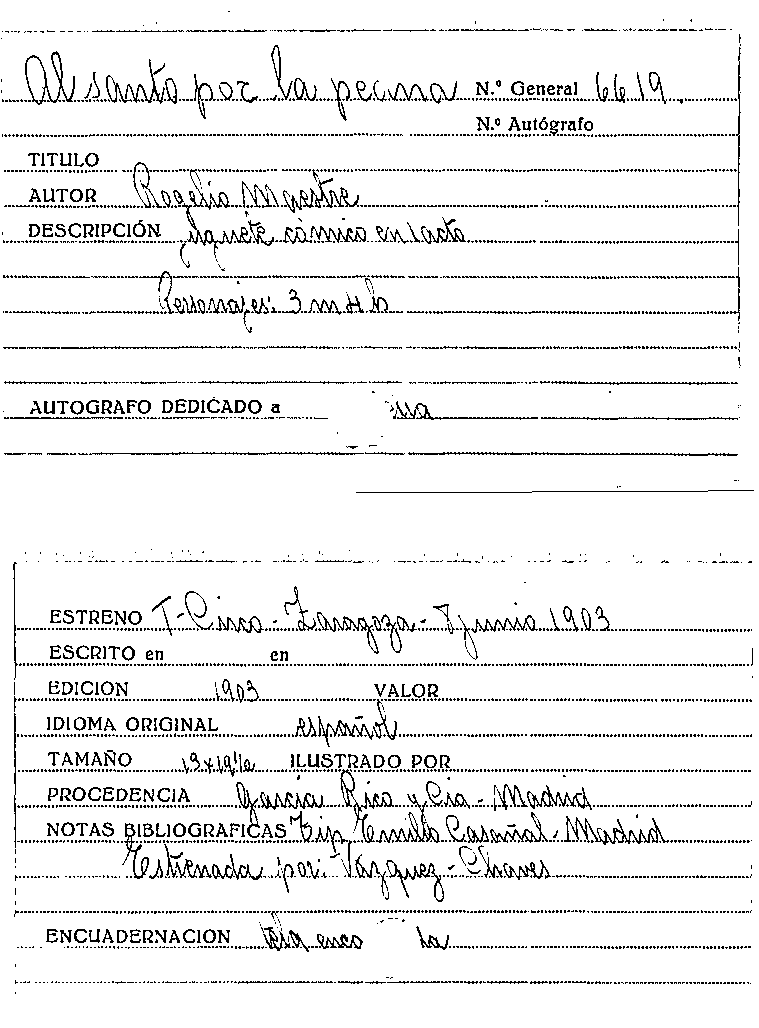 Al santo por la peana N.º General 6619.
N.º Autógrafo
TITULO
AUTOR Rogelio Maestre
DESCRIPCIÓN Juguete cómico en 1 acto
Personajes: 3 m 4 h
AUTOGRAFO DEDICADO a
ESTRENO T-Circo-Zaragoza-8 junio 1903
ESCRITO en en
EDICION 1903 VALOR
IDIOMA ORIGINAL español
TAMAÑO ILUSTRADO POR
PROCEDENCIA Garcia Rico y Cia-Madrid
NOTAS BIBLIOGRAFICAS Tip Emilio Casañal-Madrid
Estrenada por: Vázquez-Chaves
ENCUADERNACION tela